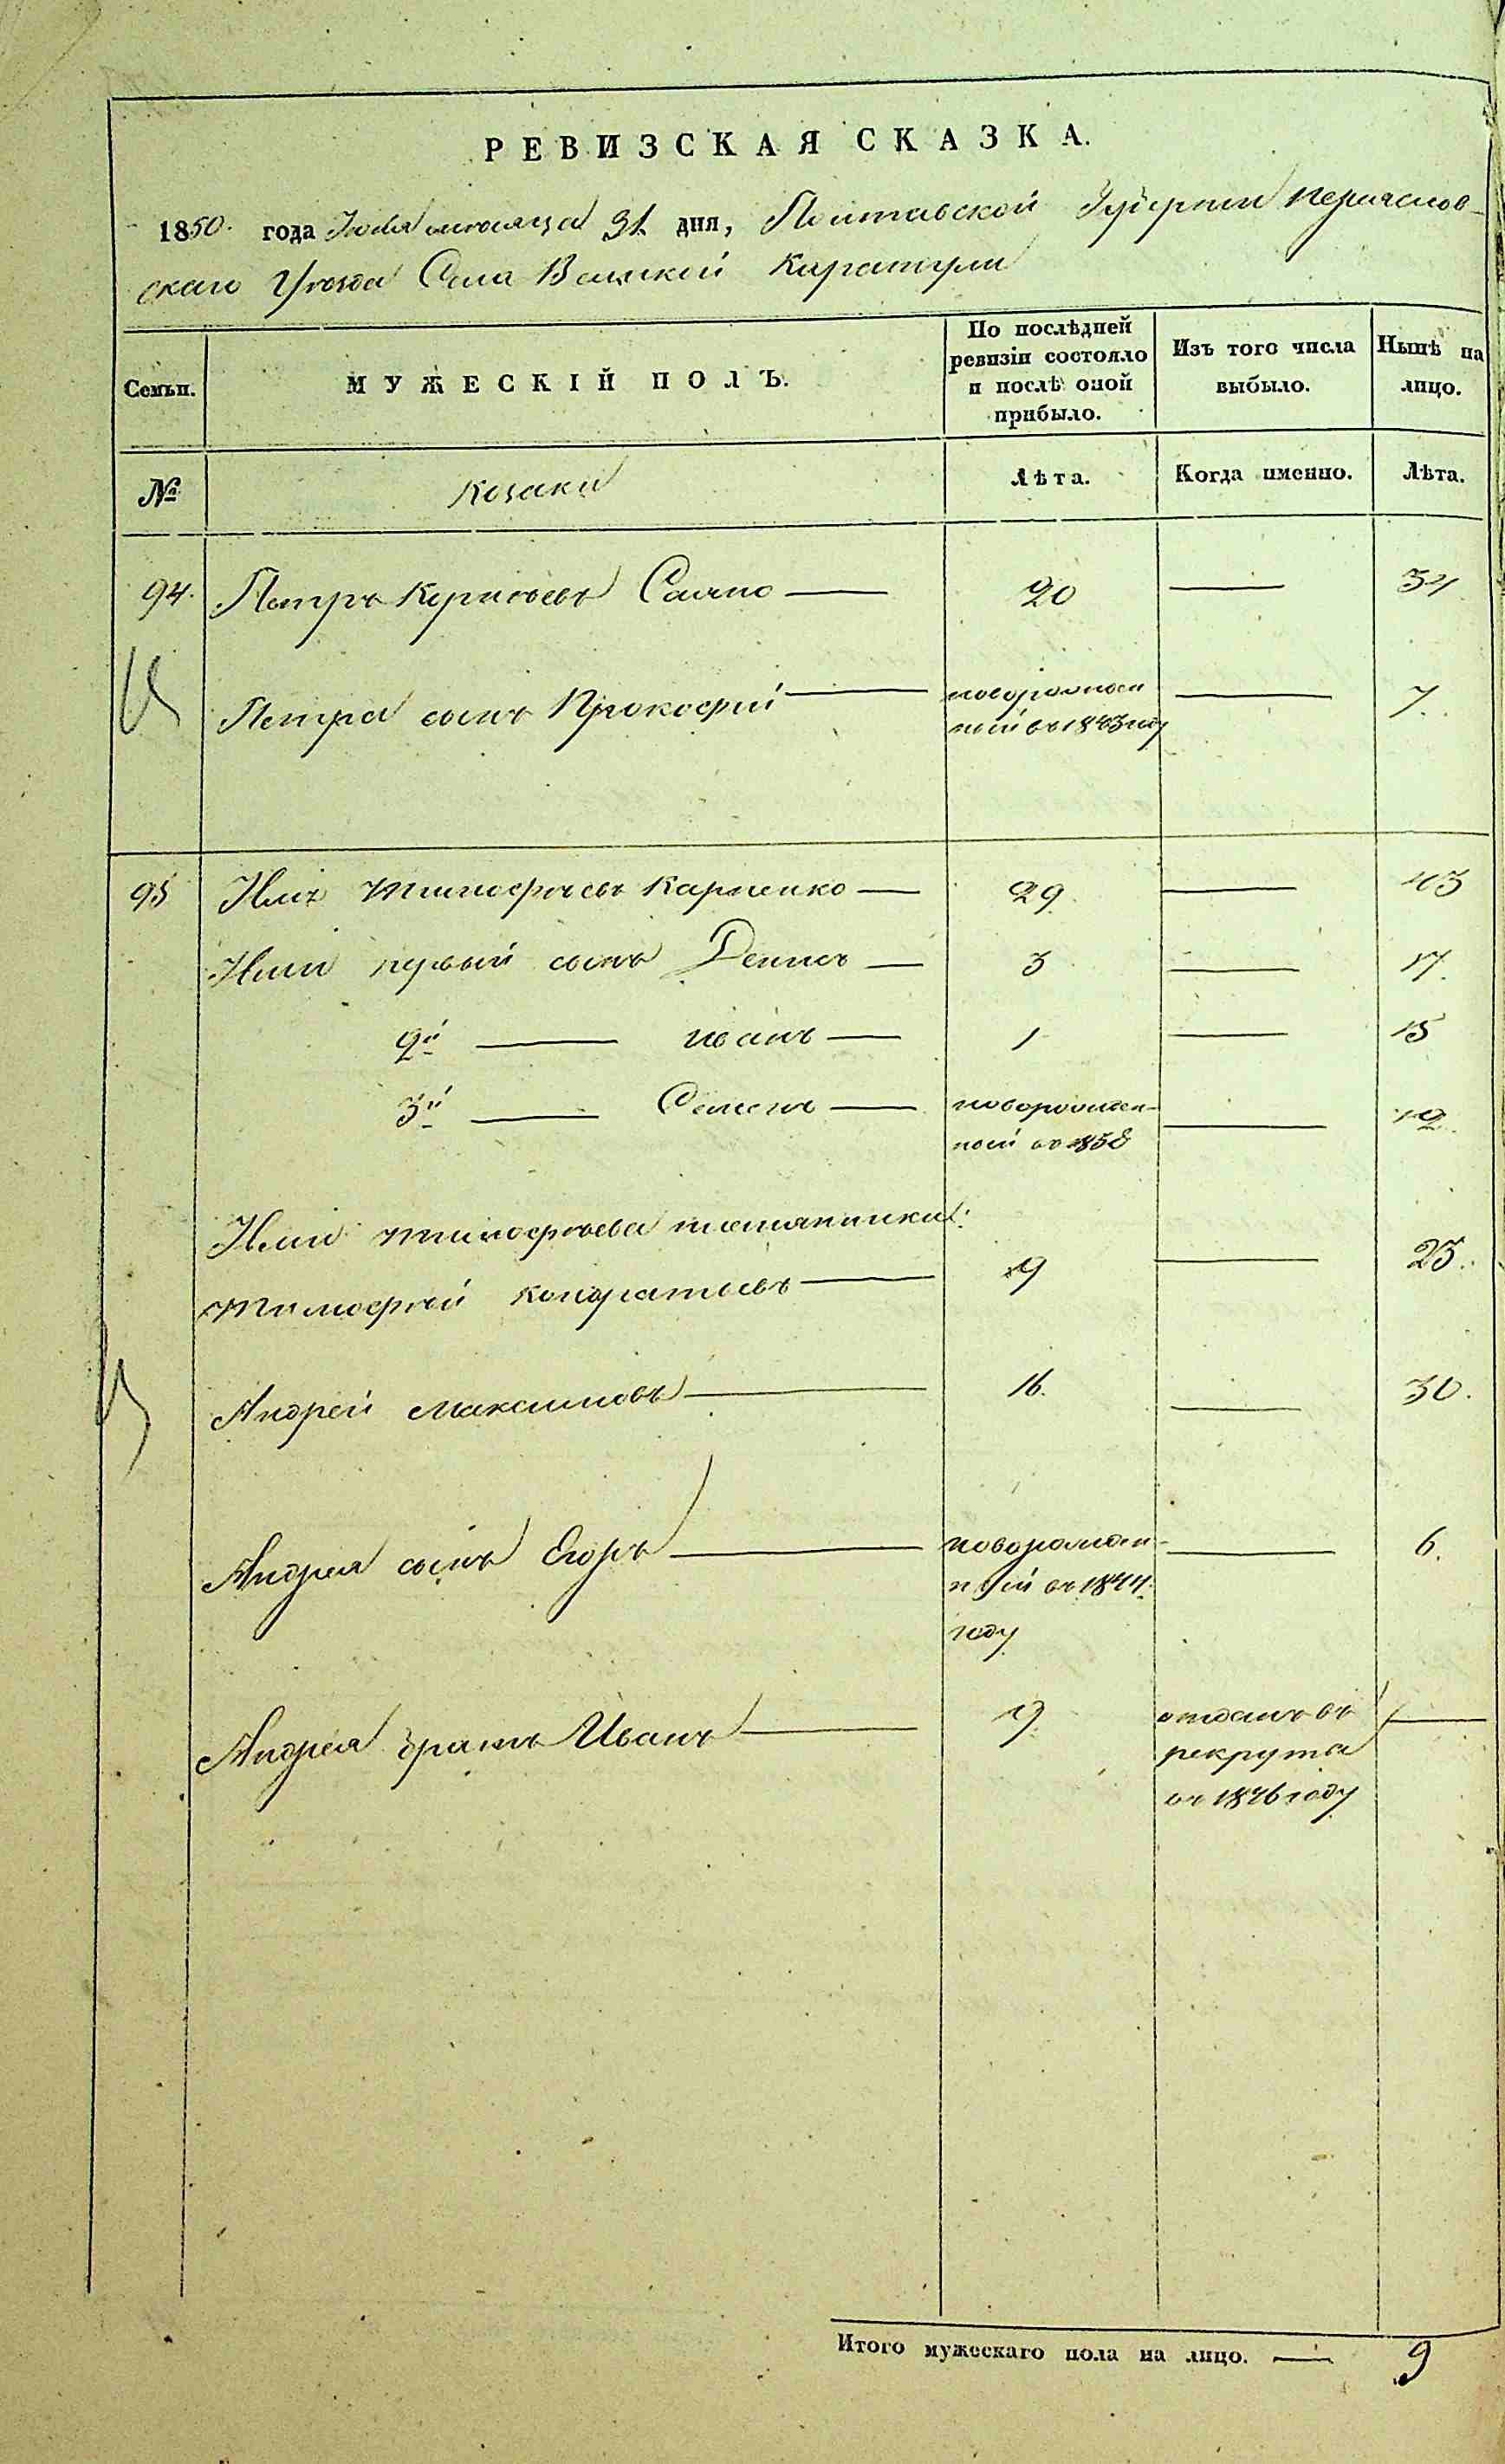 РЕВИЗСКАЯ СКАЗКА.
1850. года Июля месяца 31 дня, Полтавской Губернии Переяслов-
скаго Уѣзда Села Великой Каратули
Семьи.
МУЖЕСКІЙ ПОЛЪ.
По послѣдней ревизіи состояло и послѣ оной прибыло.
Изъ того числа выбыло.
Нынѣ на лицо.
№
Козаки
Лѣта.
Когда именно.
Лѣта.
94. Петръ 20 — 34
Петра сынъ Прокофій — новорожден
ный въ 1843 году — 7.
95 Илья Тимофѣевъ Карпенко — 29 — 43
Ильи первый сынъ Денисъ — 3 — 17.
2й — Иванъ — 1 — 15
3й — Семенъ — новорожден-
ный въ 1838 — 12
Ильи Тимофѣева племянники:
Тимофѣй Кондратьевъ — 9 — 23.
Андрей Максимовъ — 16. — 30.
Андрея сынъ Егоръ — новорожден-
ный въ 1844. — 6.
году
Андрея братъ Иванъ — 9 отданъ въ —
рекрута
въ 1846 году
Итого мужескаго пола на лицо. — 9